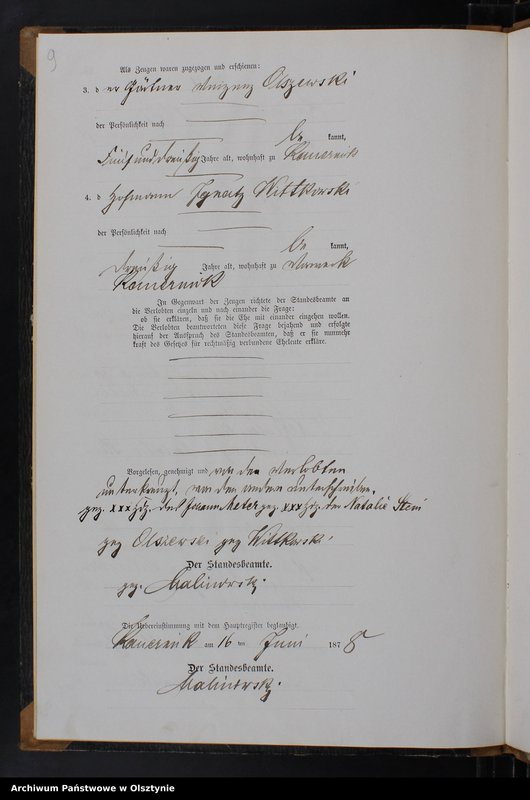 9
Als Zeugen waren zugezogen und erschienen:
3. d er Gärtner Olszewski
der Persönlichkeit nach
be kannt,
Fünfunddreißig Jahre alt, wohnhaft zu
4. d Hofmann Ignatz Wittkowski
der Persönlichkeit nach
be kannt,
dreißig Jahre alt, wohnhaft zu
In Gegenwart der Zeugen richtete der Standesbeamte an
die Verlobten einzeln und nach einander die Frage:
ob sie erklären, daß sie die Ehe mit einander eingehen wollen.
Die Verlobten beantworteten diese Frage bejahend und erfolgte
hierauf der Ausspruch des Standesbeamten, daß er sie nunmehr
kraft des Gesetzes für rechtmäßig verbundene Eheleute erkläre.
Vorgelesen, genehmigt und von den Verlobten
unterkreuzt, von den andern unterschrieben.
gez. xxx Hdz. des Johann gez. xxx Hdz. der Natalie
gez Olszewski gez Wittkowski
Der Standesbeamte.
gez. Malinowski.
Die Uebereinstimmung mit dem Hauptregister beglaubigt.
am 16 ten Juni 187 8
Der Standesbeamte.
Malinowski.
Archiwum Państwowe w Olsztynie